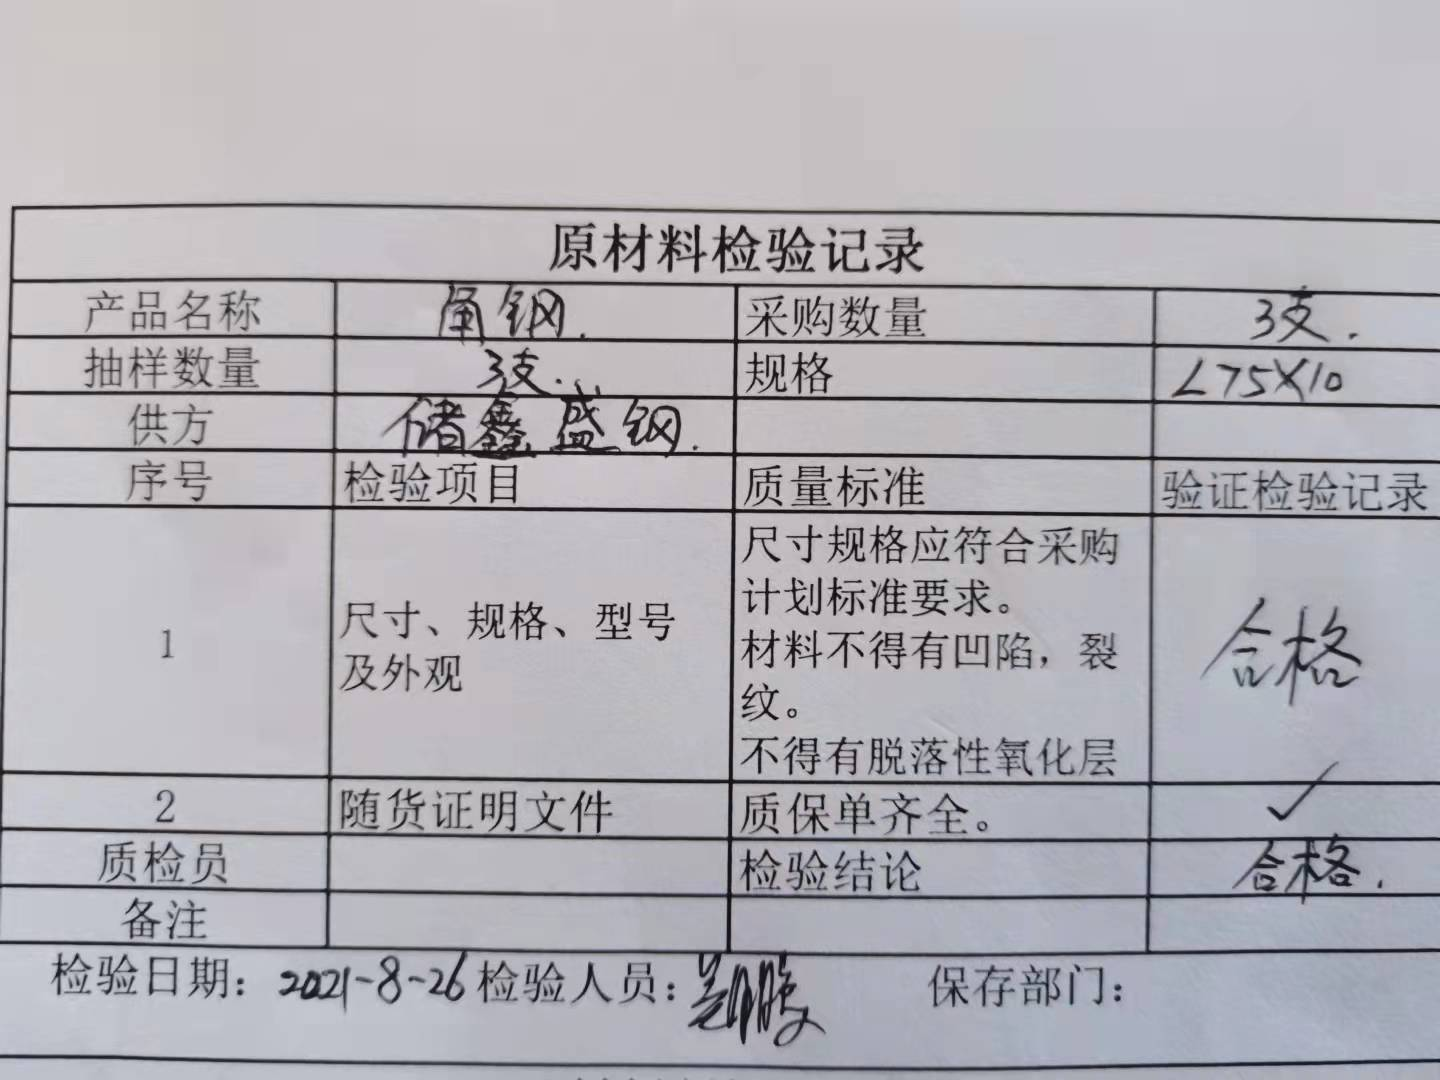 原材料检验记录
产品名称 角钢. 采购数量 3支.
抽样数量 3支. 规格 ∠75×10
供方 储鑫盛钢.
序号 检验项目 质量标准 验证检验记录
1 尺寸、规格、型号及外观 尺寸规格应符合采购
计划标准要求。
材料不得有凹陷，裂
纹。
不得有脱落性氧化层 合格
2 随货证明文件 质保单齐全。 ✓
质检员 检验结论 合格.
备注
检验日期：2021-8-26 检验人员： 保存部门：